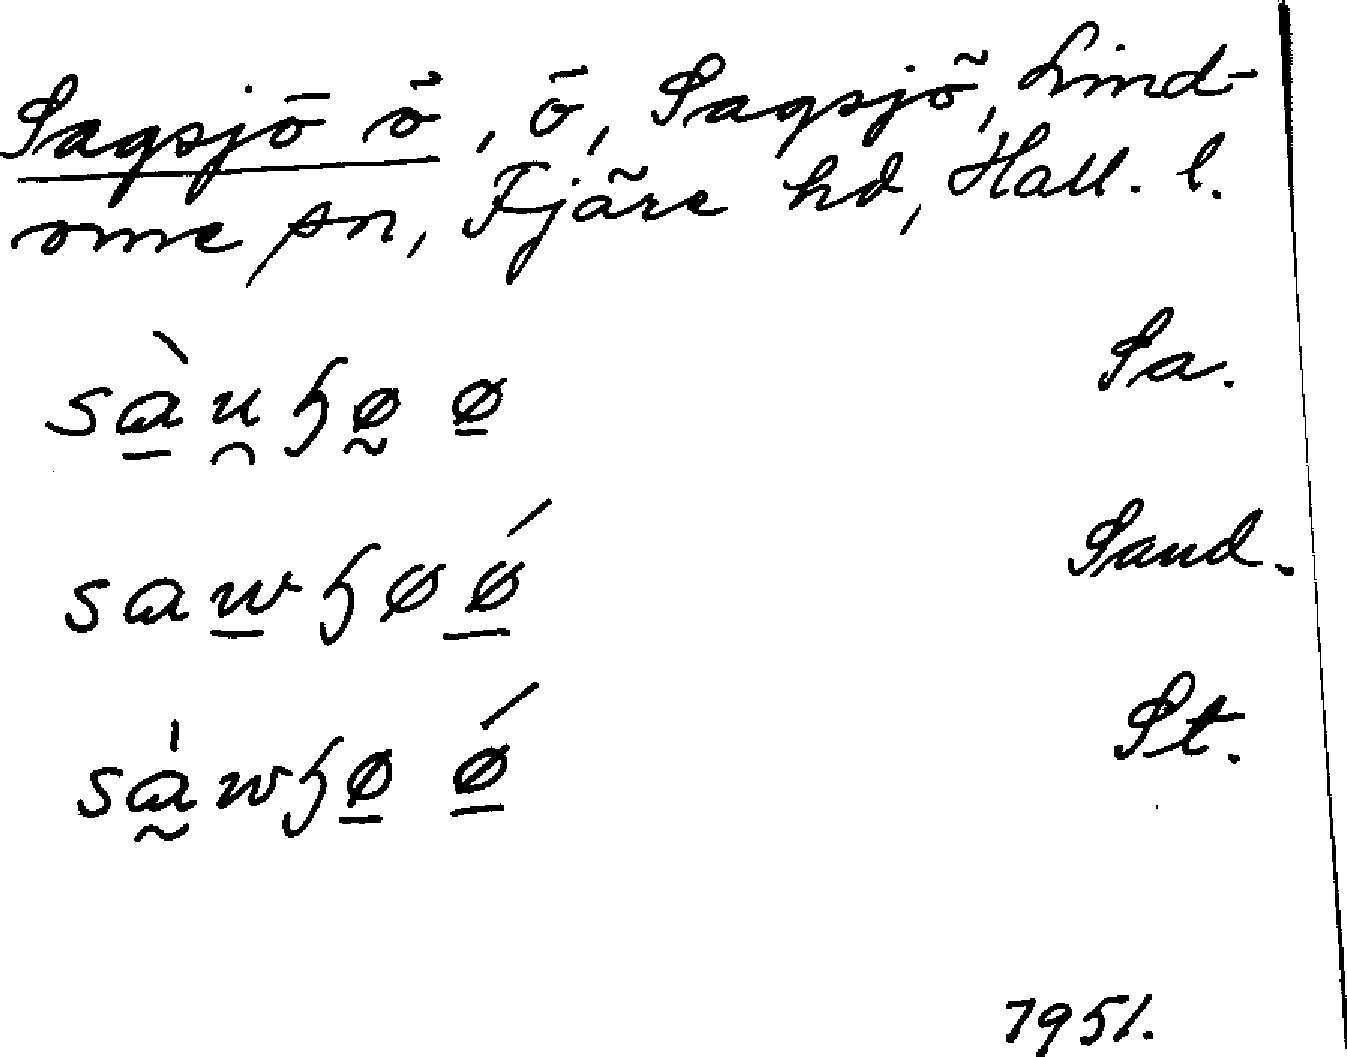 Sagsjö ö, ö, Sagsjö, Lind-
ome sn, Fjäre hd, Hall. l.
sà̠u̯ɧø̰ ø̠ Sa.
saw̠ɧøǿ̠ Sand.
sa̰̍wɧø̠ ǿ̠ St.
1951.